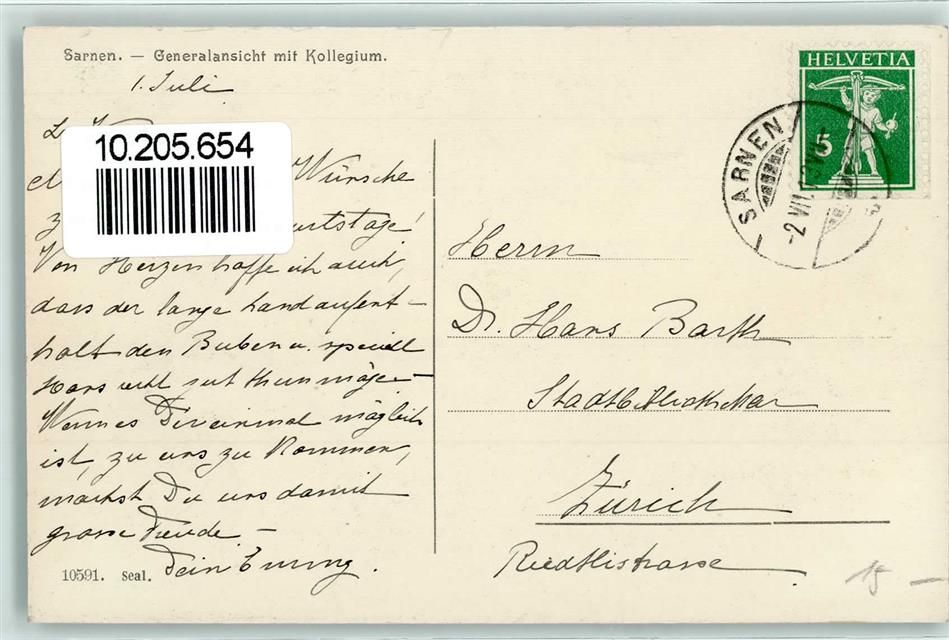 Sarnen. — Generalansicht mit Kollegium.
1. Juli
10.205.654
Wünsche
Von Herzen hoffe ich auch,
dass der lange Landaufent-
halt den Buben u. speziell
Hans wohl gut thun möge –
Wenn es Dir einmal möglich
ist, zu uns zu kommen,
machst Du uns damit
grosse Freude –
Dein
10591. Seal.
HELVETIA
5
SARNEN
-2.VII.
Herrn
Dr. Hans Barth
Stadtbibliothekar
Zürich
Riedtlistrasse
15 –